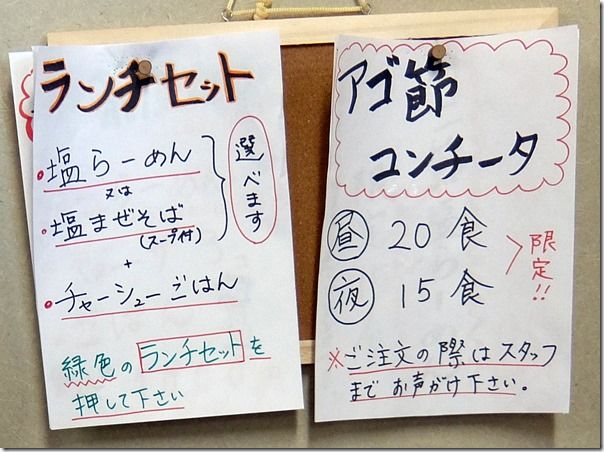 ランチセット
塩らーめん
又は
塩まぜそば
(スープ付)
選べます
+
チャーシューごはん
緑色のランチセットを
押して下さい
アゴ節
コンチータ
昼 20食
夜 15食
限定!!
※ご注文の際はスタッフ
までお声がけ下さい。